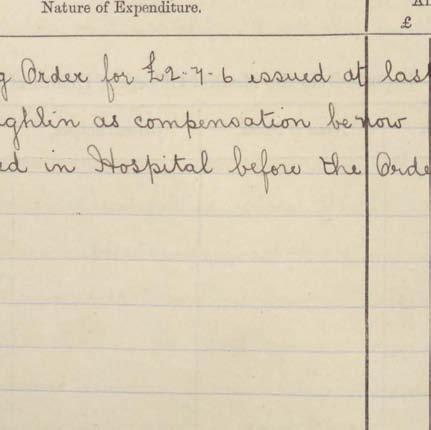 Nature of Expenditure.
£
g Order for £2-7-6 issued at last
ghlin as compensation be now
ed in Hospital before the Orde